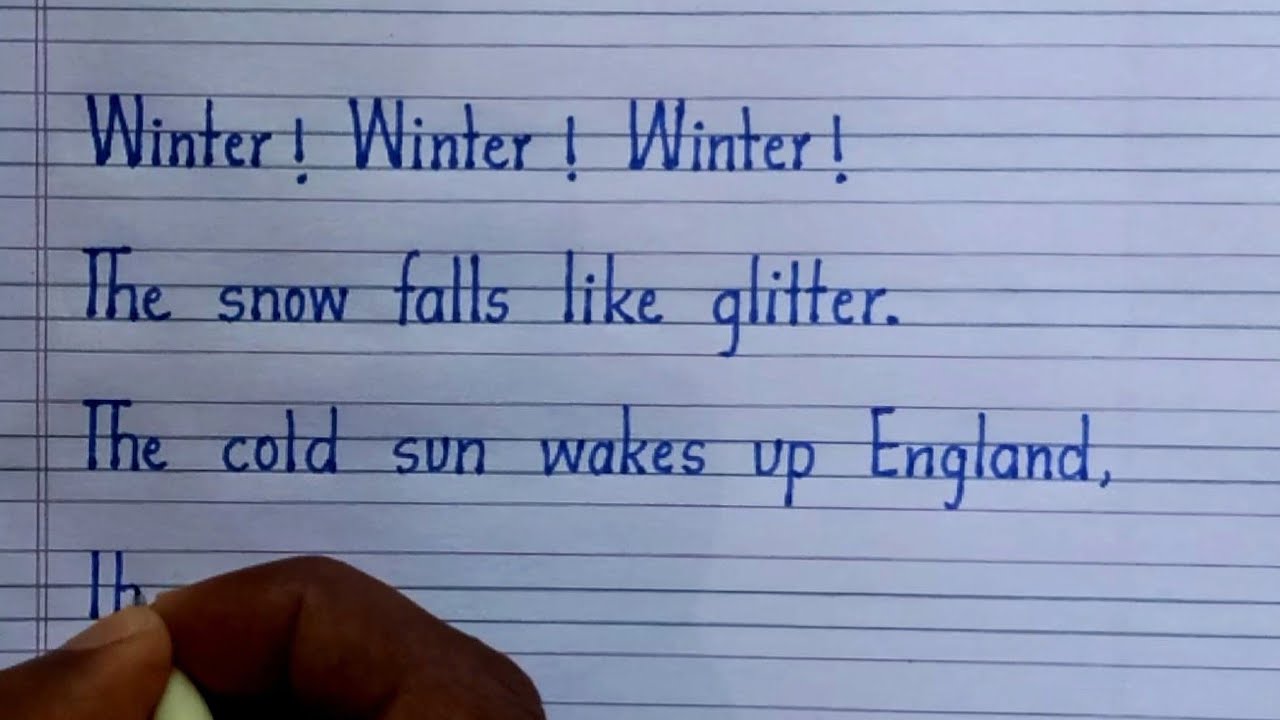 Winter! Winter! Winter!
The snow falls like glitter.
The cold sun wakes up England,